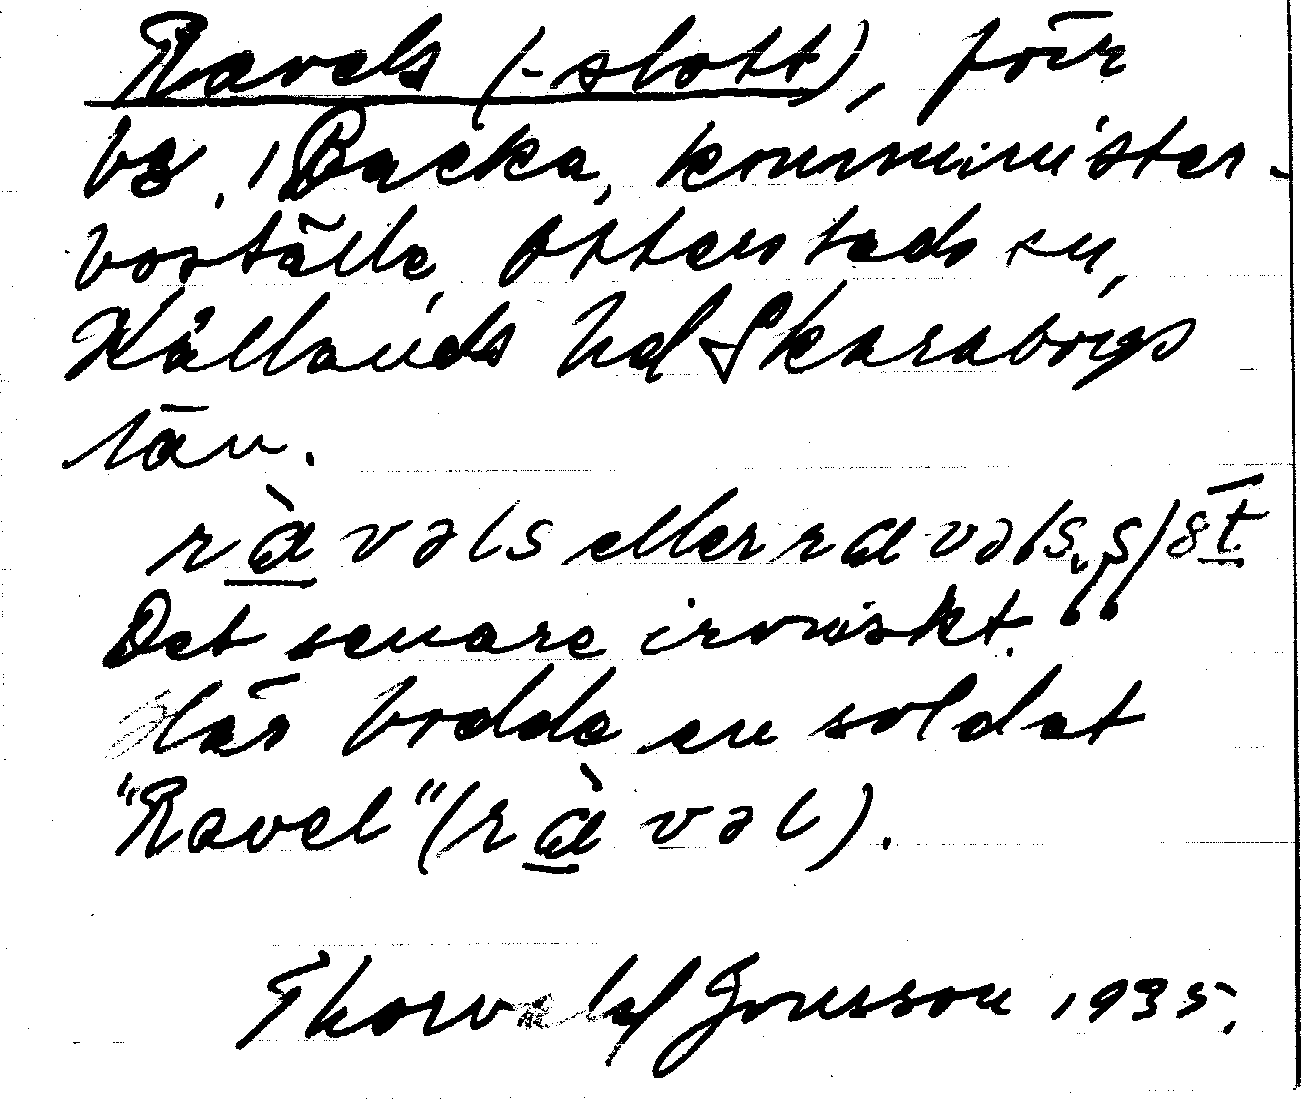 Ravels (-slott), för
bg. 1 Backa, komminister-
boställe, Otterstads sn,
Kållands hd, Skaraborgs
län.
rà̱vəls eller ravəls,s/st
Det senare ironiskt.
Här bodde en soldat
"Ravel" (rà̱vəl).
Thorvald Jonsson 1935.